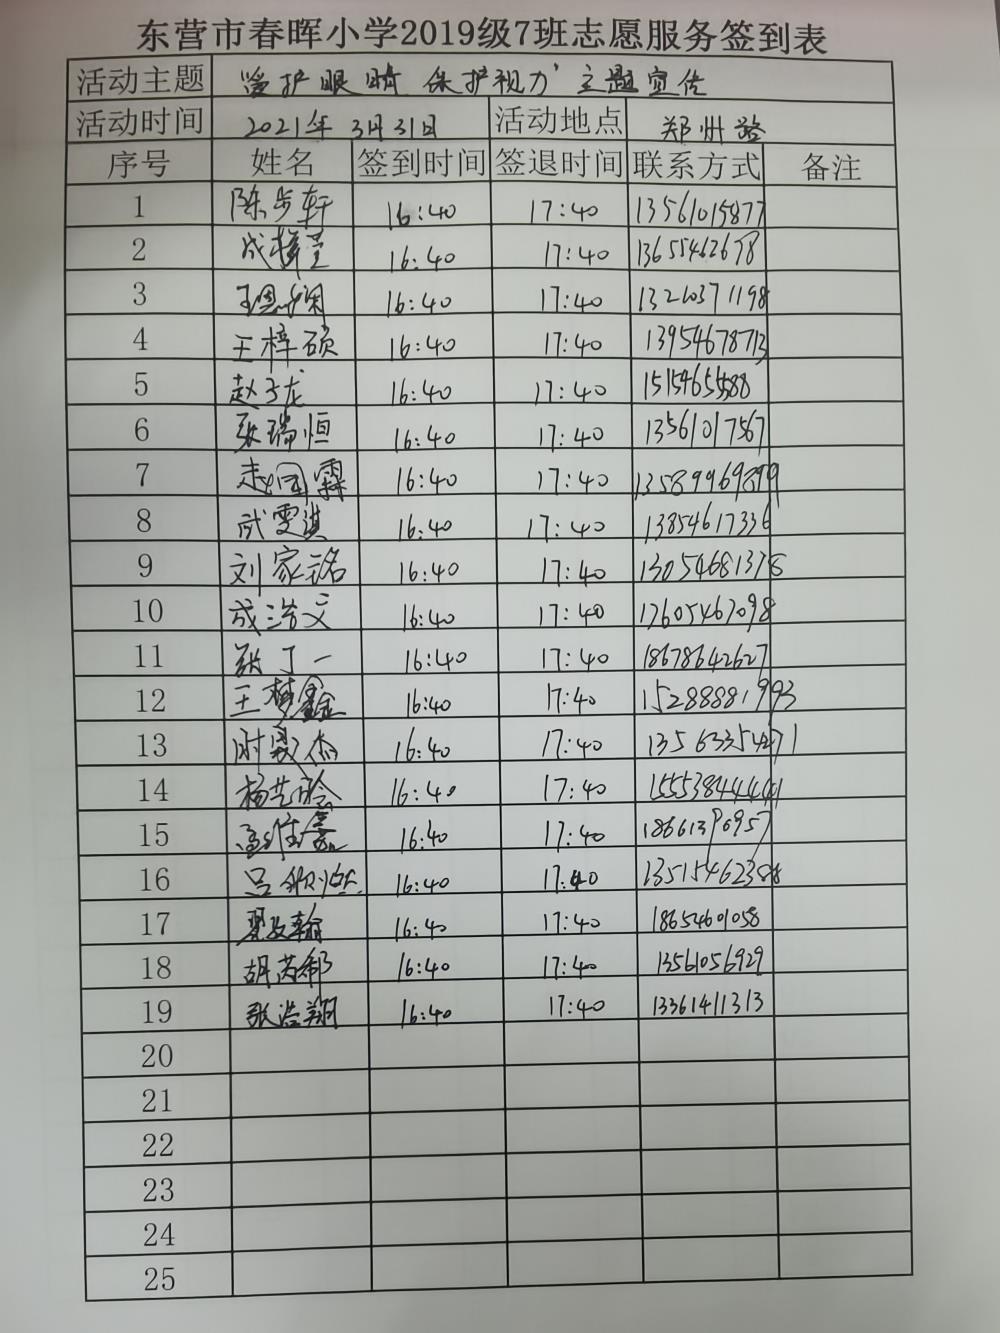 东营市春晖小学2019级7班志愿服务签到表
活动主题 “爱护眼睛 保护视力”主题宣传
活动时间 2021年3月31日 活动地点 郑州路
序号 姓名 签到时间 签退时间 联系方式 备注
1 陈步轩 16:40 17:40 13561015877
2 成梓萱 16:40 17:40 13655462678
3 王恩娴 16:40 17:40 13210371198
4 王梓硕 16:40 17:40 13954678713
5 赵子龙 16:40 17:40 15154655588
6 张瑞恒 16:40 17:40 13561017567
7 16:40 17:40 13589969899
8 武雯淇 16:40 17:40 13854617336
9 刘家铭 16:40 17:40 13054681378
10 成浩文 16:40 17:40 17605467098
11 张丁一 16:40 17:40 18678642627
12 王梦鑫 16:40 17:40 15288881993
13 16:40 17:40 13563354271
14 杨芸晗 16:40 17:40 15553844441
15 16:40 17:40 18661390957
16 16:40 17:40 13515462388
17 16:40 17:40 18654601058
18 胡芮郗 16:40 17:40 13561056929
19 张浩翔 16:40 17:40 13361411313
20
21
22
23
24
25